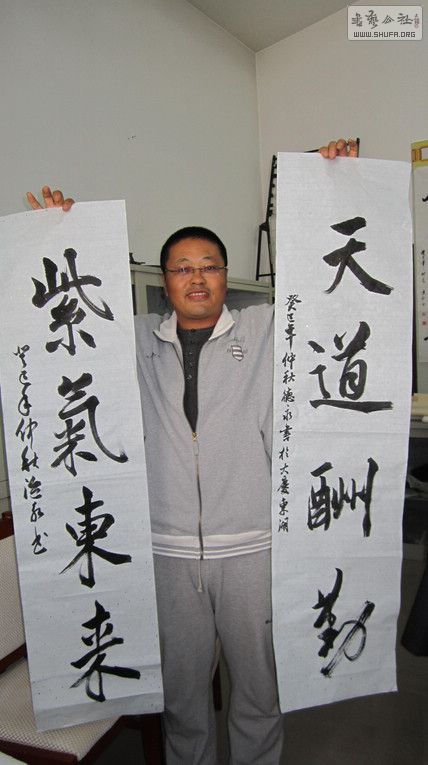 書藝公社
WWW.SHUFA.ORG
天道酬勤
癸巳年仲秋德永書於大慶東湖
紫氣東来
癸巳年仲秋德永书